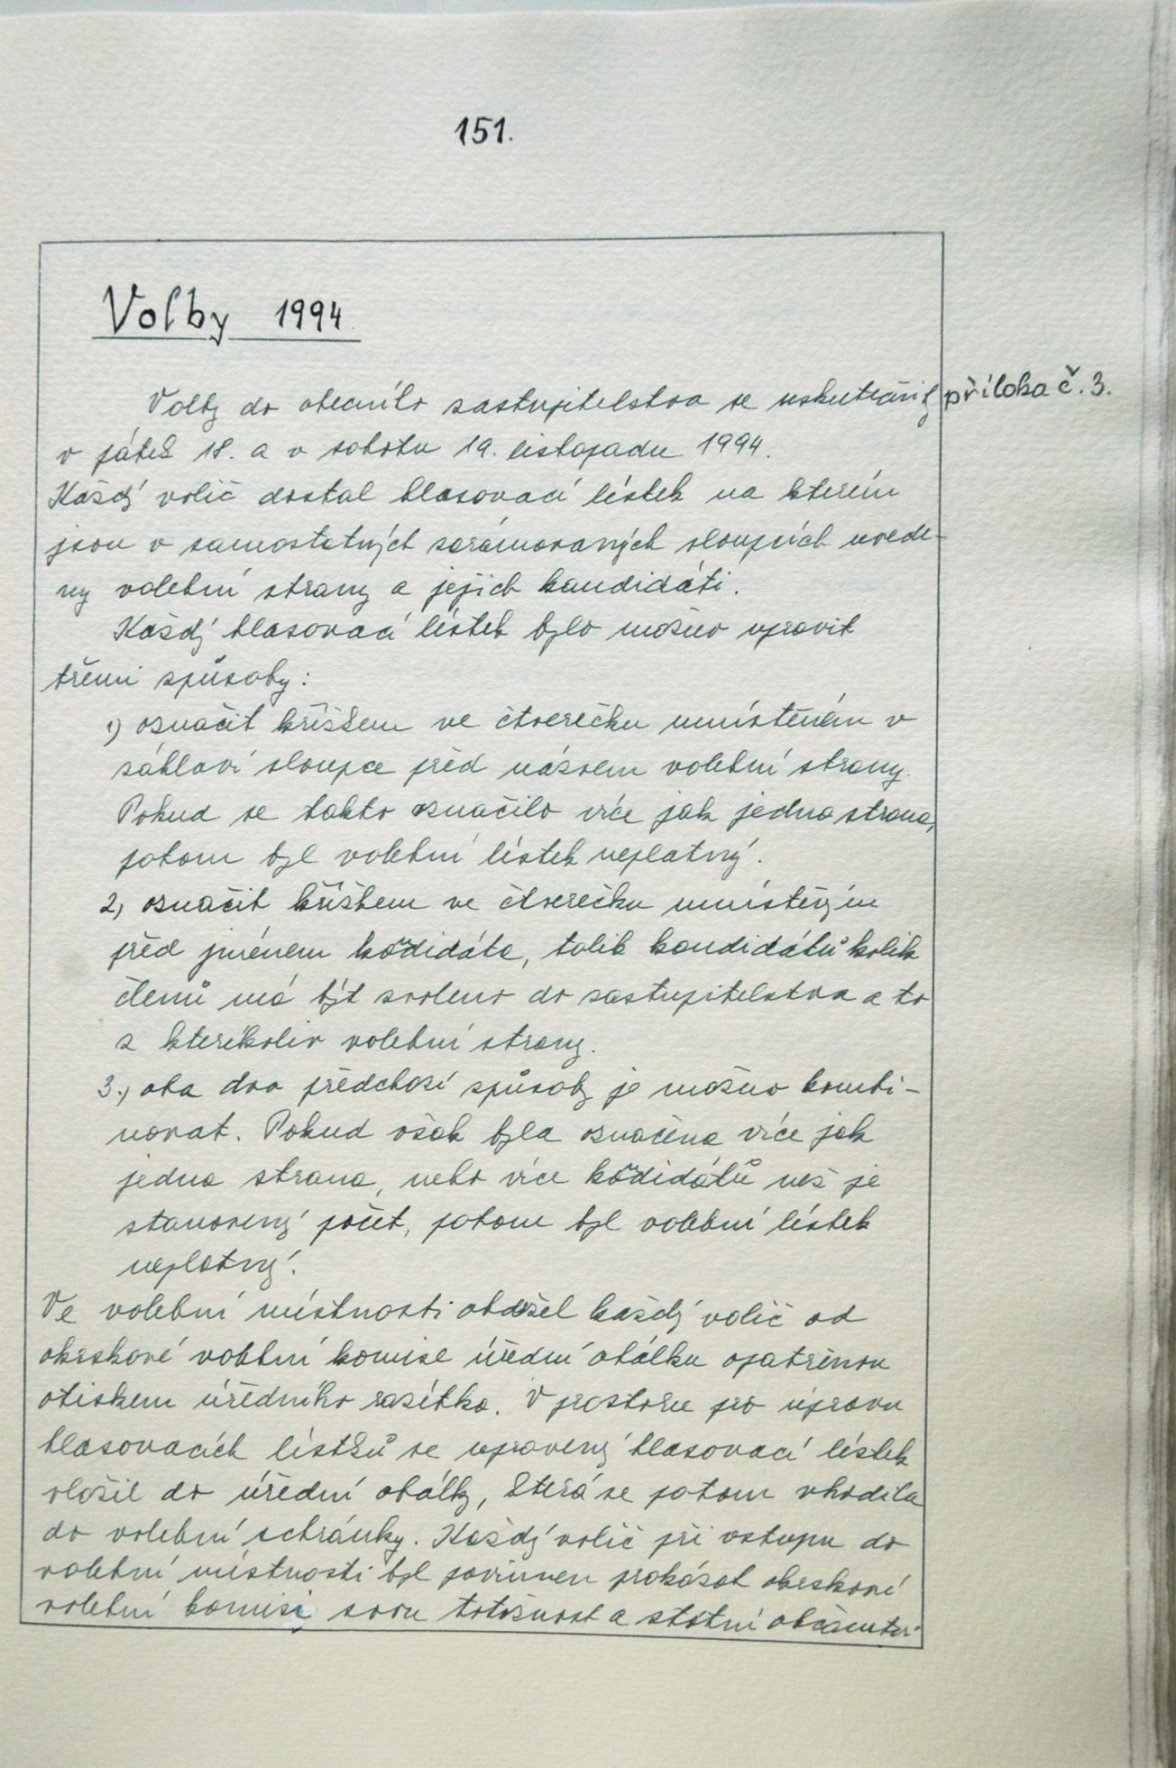 151.
Volby 1994
Volby do obecního zastupitelstva se uskutečnily příloha č. 3.
v pátek 18. a v sobotu 19. listopadu 1994.
Každý volič dostal hlasovací lístek na kterém
jsou v samostatných zarámovaných sloupcích uvede-
ny volební strany a jejich kandidáti.
Každý hlasovací lístek bylo možno upravit
třemi způsoby:
1) označit křížkem ve čtverečku umístěném v
záhlaví sloupce před názvem volební strany.
Pokud se takto označilo více jak jedna strana,
potom byl volební lístek neplatný.
2) označit křížkem ve čtverečku umístěným
před jménem kandidáta, tolik kandidátů kolik
členů má být zvoleno do zastupitelstva a to
z kterékoliv volební strany.
3.) oba dva předchozí způsoby je možno kombi-
novat. Pokud však byla označena více jak
jedna strana, nebo více kandidátů než je
stanovený počet, potom byl volební lístek
neplatný.
Ve volební místnosti obdržel každý volič od
okrskové volební komise úřední obálku opatřenou
otiskem úředního razítka. V prostoru pro úpravu
hlasovacích lístků se upravený hlasovací lístek
vložil do úřední obálky, která se potom vhodila
do volební schránky. Každý volič při vstupu do
volební místnosti byl povinnen prokázat okrskové
volební komisi svou totožnost a státní občanství